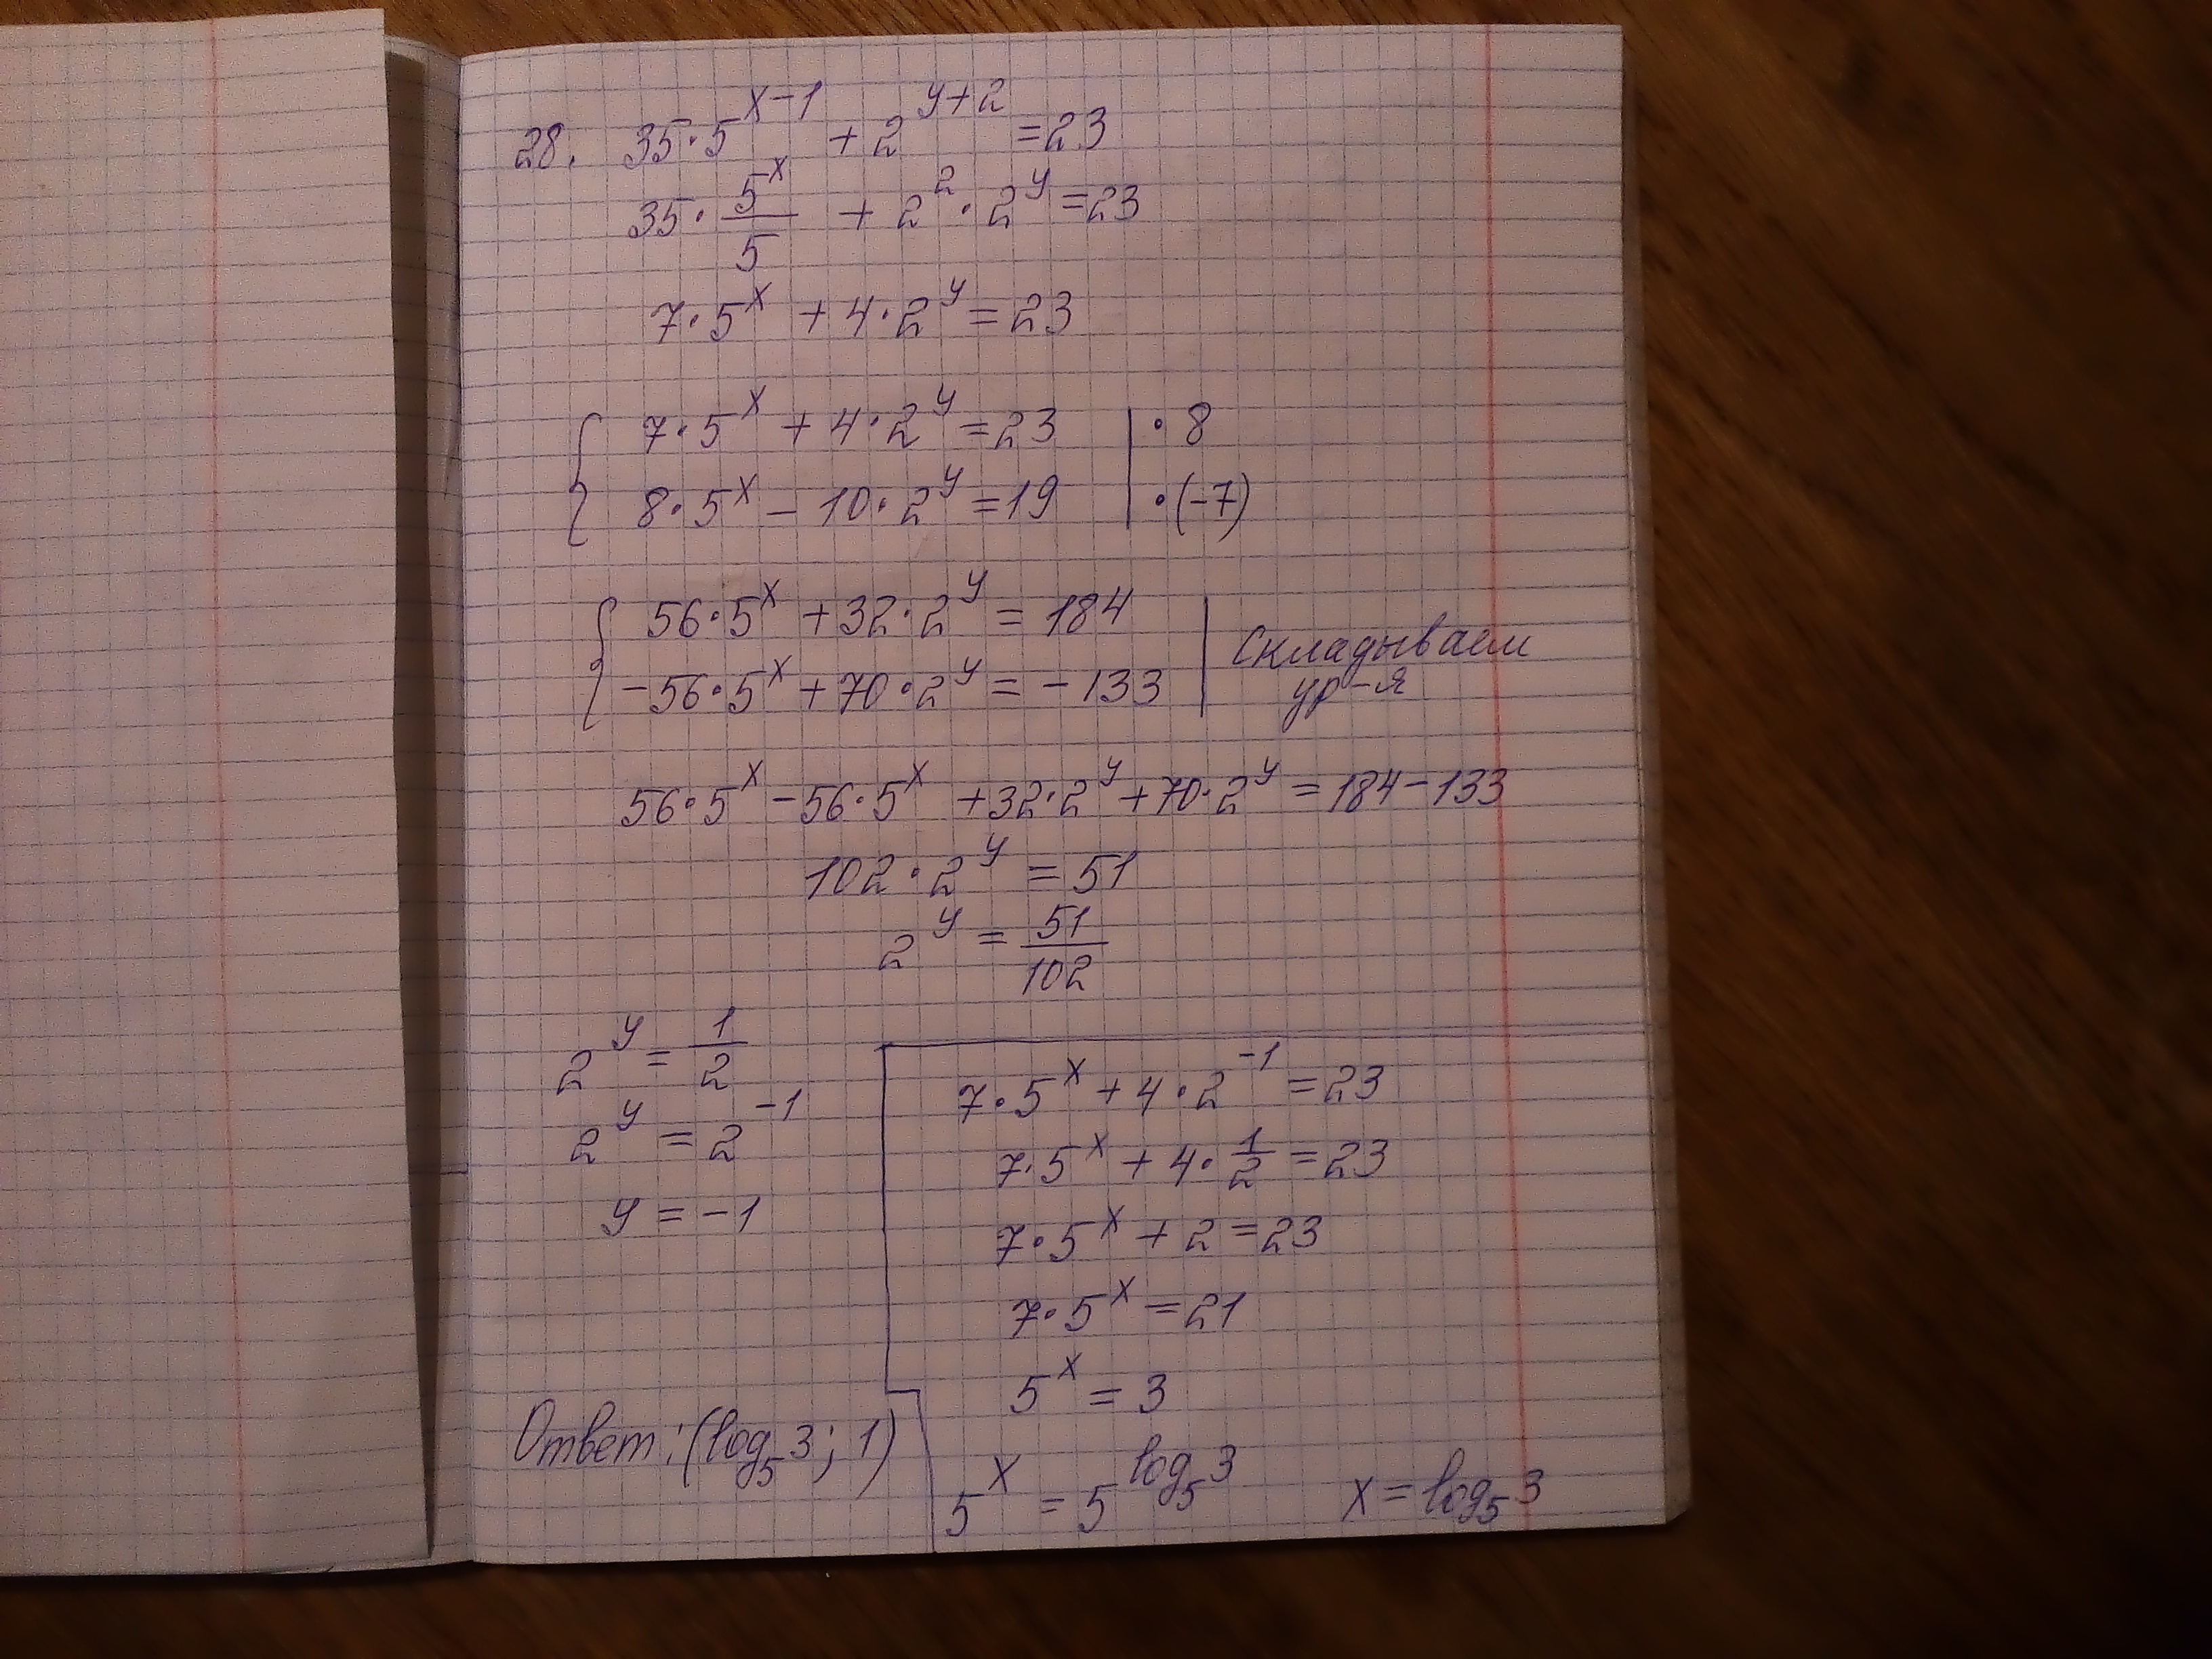 28. 35·5^{x-1} + 2^{y+2} = 23
35· 5^x/5 + 2^2 · 2^y = 23
7·5^x + 4·2^y = 23
{ 7·5^x + 4·2^y = 23 | · 8
8·5^x - 10·2^y = 19 | · (-7)
{ 56·5^x + 32·2^y = 184 | Складываем
-56·5^x + 70·2^y = -133 | ур-я
56·5^x - 56·5^x + 32·2^y + 70·2^y = 184 - 133
102·2^y = 51
2^y = 51/102
2^y = 1/2
2^y = 2^{-1}
y = -1
7·5^x + 4·2^{-1} = 23
7·5^x + 4· 1/2 = 23
7·5^x + 2 = 23
7·5^x = 21
5^x = 3
5^x = 5^{log_5 3} x = log_5 3
Ответ: (log_5 3; 1)